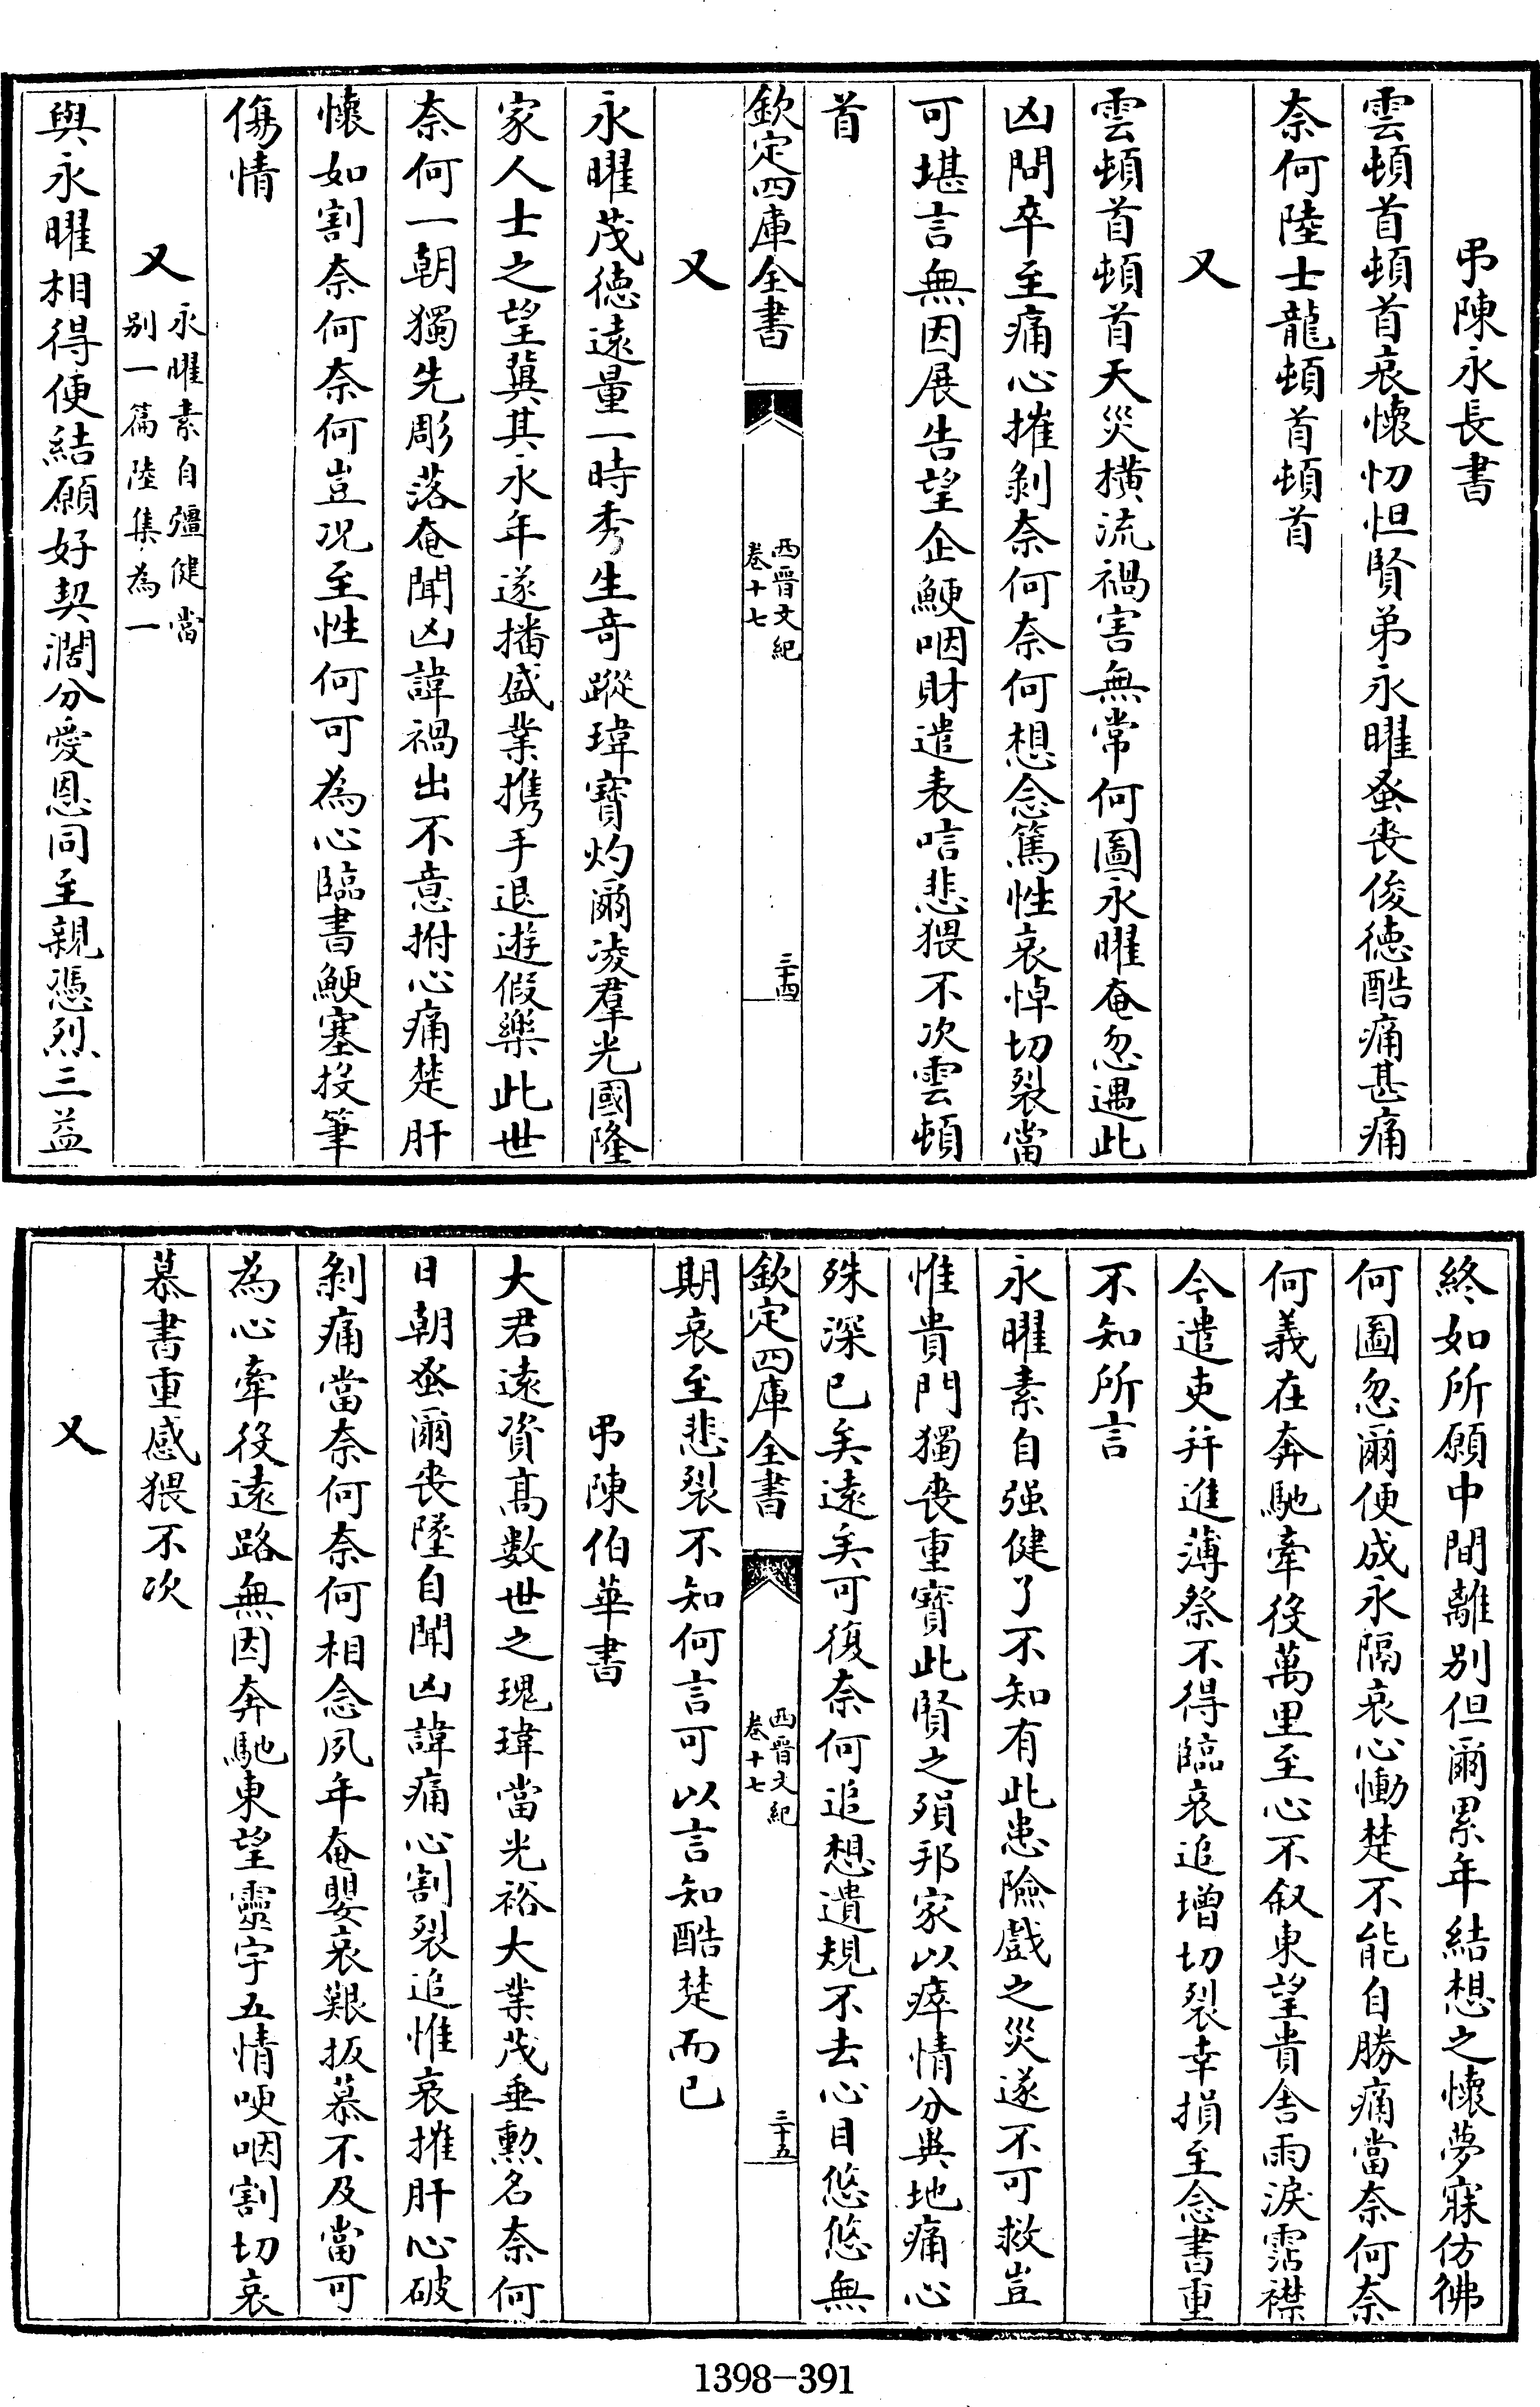 弔陳永長書
雲頓首頓首哀懷忉怛賢弟永曜蚤喪俊徳酷痛甚痛
奈何陸士龍頓首頓首
又
雲頓首頓首天災横流禍害無常何圖永曜奄忽遇此
凶問卒至痛心摧剝奈何奈何想念篤性哀悼切裂當
可堪言無因展告望企鯁咽財遣表唁悲猥不次雲頓
首
欽定四庫全書
西晉文紀
卷十七
三十四
又
永曜茂徳遠量一時秀生竒蹤瑋寳灼爾凌羣光國隆
家人士之望冀其永年遂播盛業携手退遊假樂此世
奈何一朝獨先彫落奄聞凶諱禍出不意拊心痛楚肝
懐如割奈何奈何豈况至性何可為心臨書鯁塞投筆
傷情
又
永曜素自彊健當
别一篇陸集為一
與永曜相得便結願好契濶分愛恩同至親憑烈三益
終如所願中間離别但爾累年結想之懐夢寐仿彿
何圖忽爾便成永隔哀心慟楚不能自勝痛當奈何奈
何義在奔馳牽役萬里至心不叙東望貴舎雨淚霑襟
今遣吏并進薄祭不得臨哀追增切裂幸損至念書重
不知所言
永曜素自强健了不知有此患險戲之災遂不可救豈
惟貴門獨喪重寳此賢之殞邦家以瘁情分與地痛心
殊深已矣遠矣可復奈何追想遺規不去心目悠悠無
欽定四庫全書
西晉文紀
卷十七
三十五
期哀至悲裂不知何言可以言知酷楚而已
弔陳伯華書
大君遠資髙數世之瑰瑋當光裕大業茂垂勲名奈何
日朝蚤爾喪墜自聞凶諱痛心割裂追惟哀摧肝心破
剝痛當奈何奈何相念夙年奄嬰哀艱扳慕不及當可
為心牽役遠路無因奔馳東望靈宇五情哽咽割切哀
慕書重感猥不次
又
1398-391